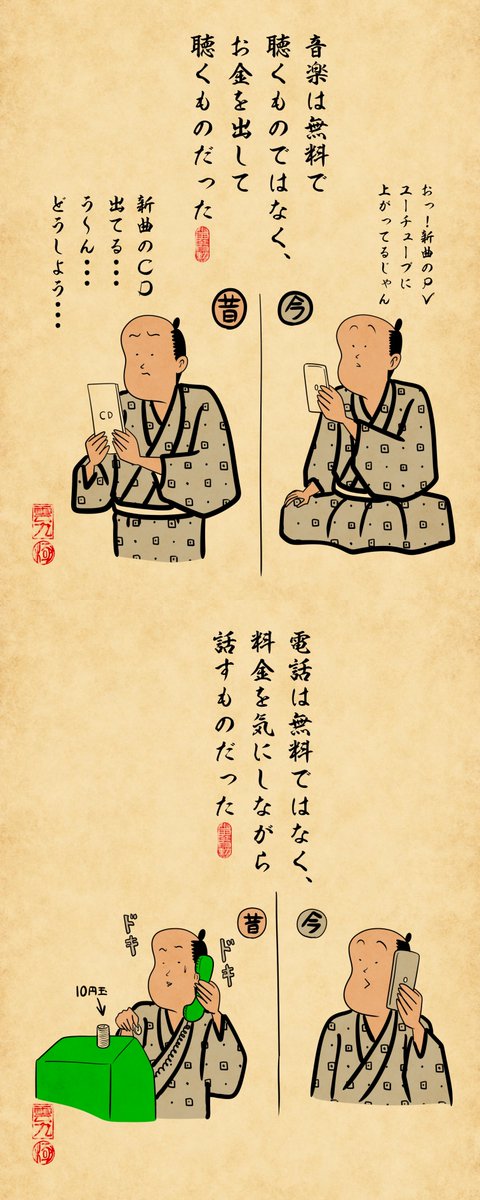 音楽は無料で
聴くものではなく、
お金を出して
聴くものだった
おっ！新曲のPV
ユーチューブに
上がってるじゃん
今
昔
新曲のCD
出てる・・・
う〜ん・・・
どうしよう・・・
CD
電話は無料ではなく、
料金を気にしながら
話すものだった
今
昔
ドキ
ドキ
10円玉